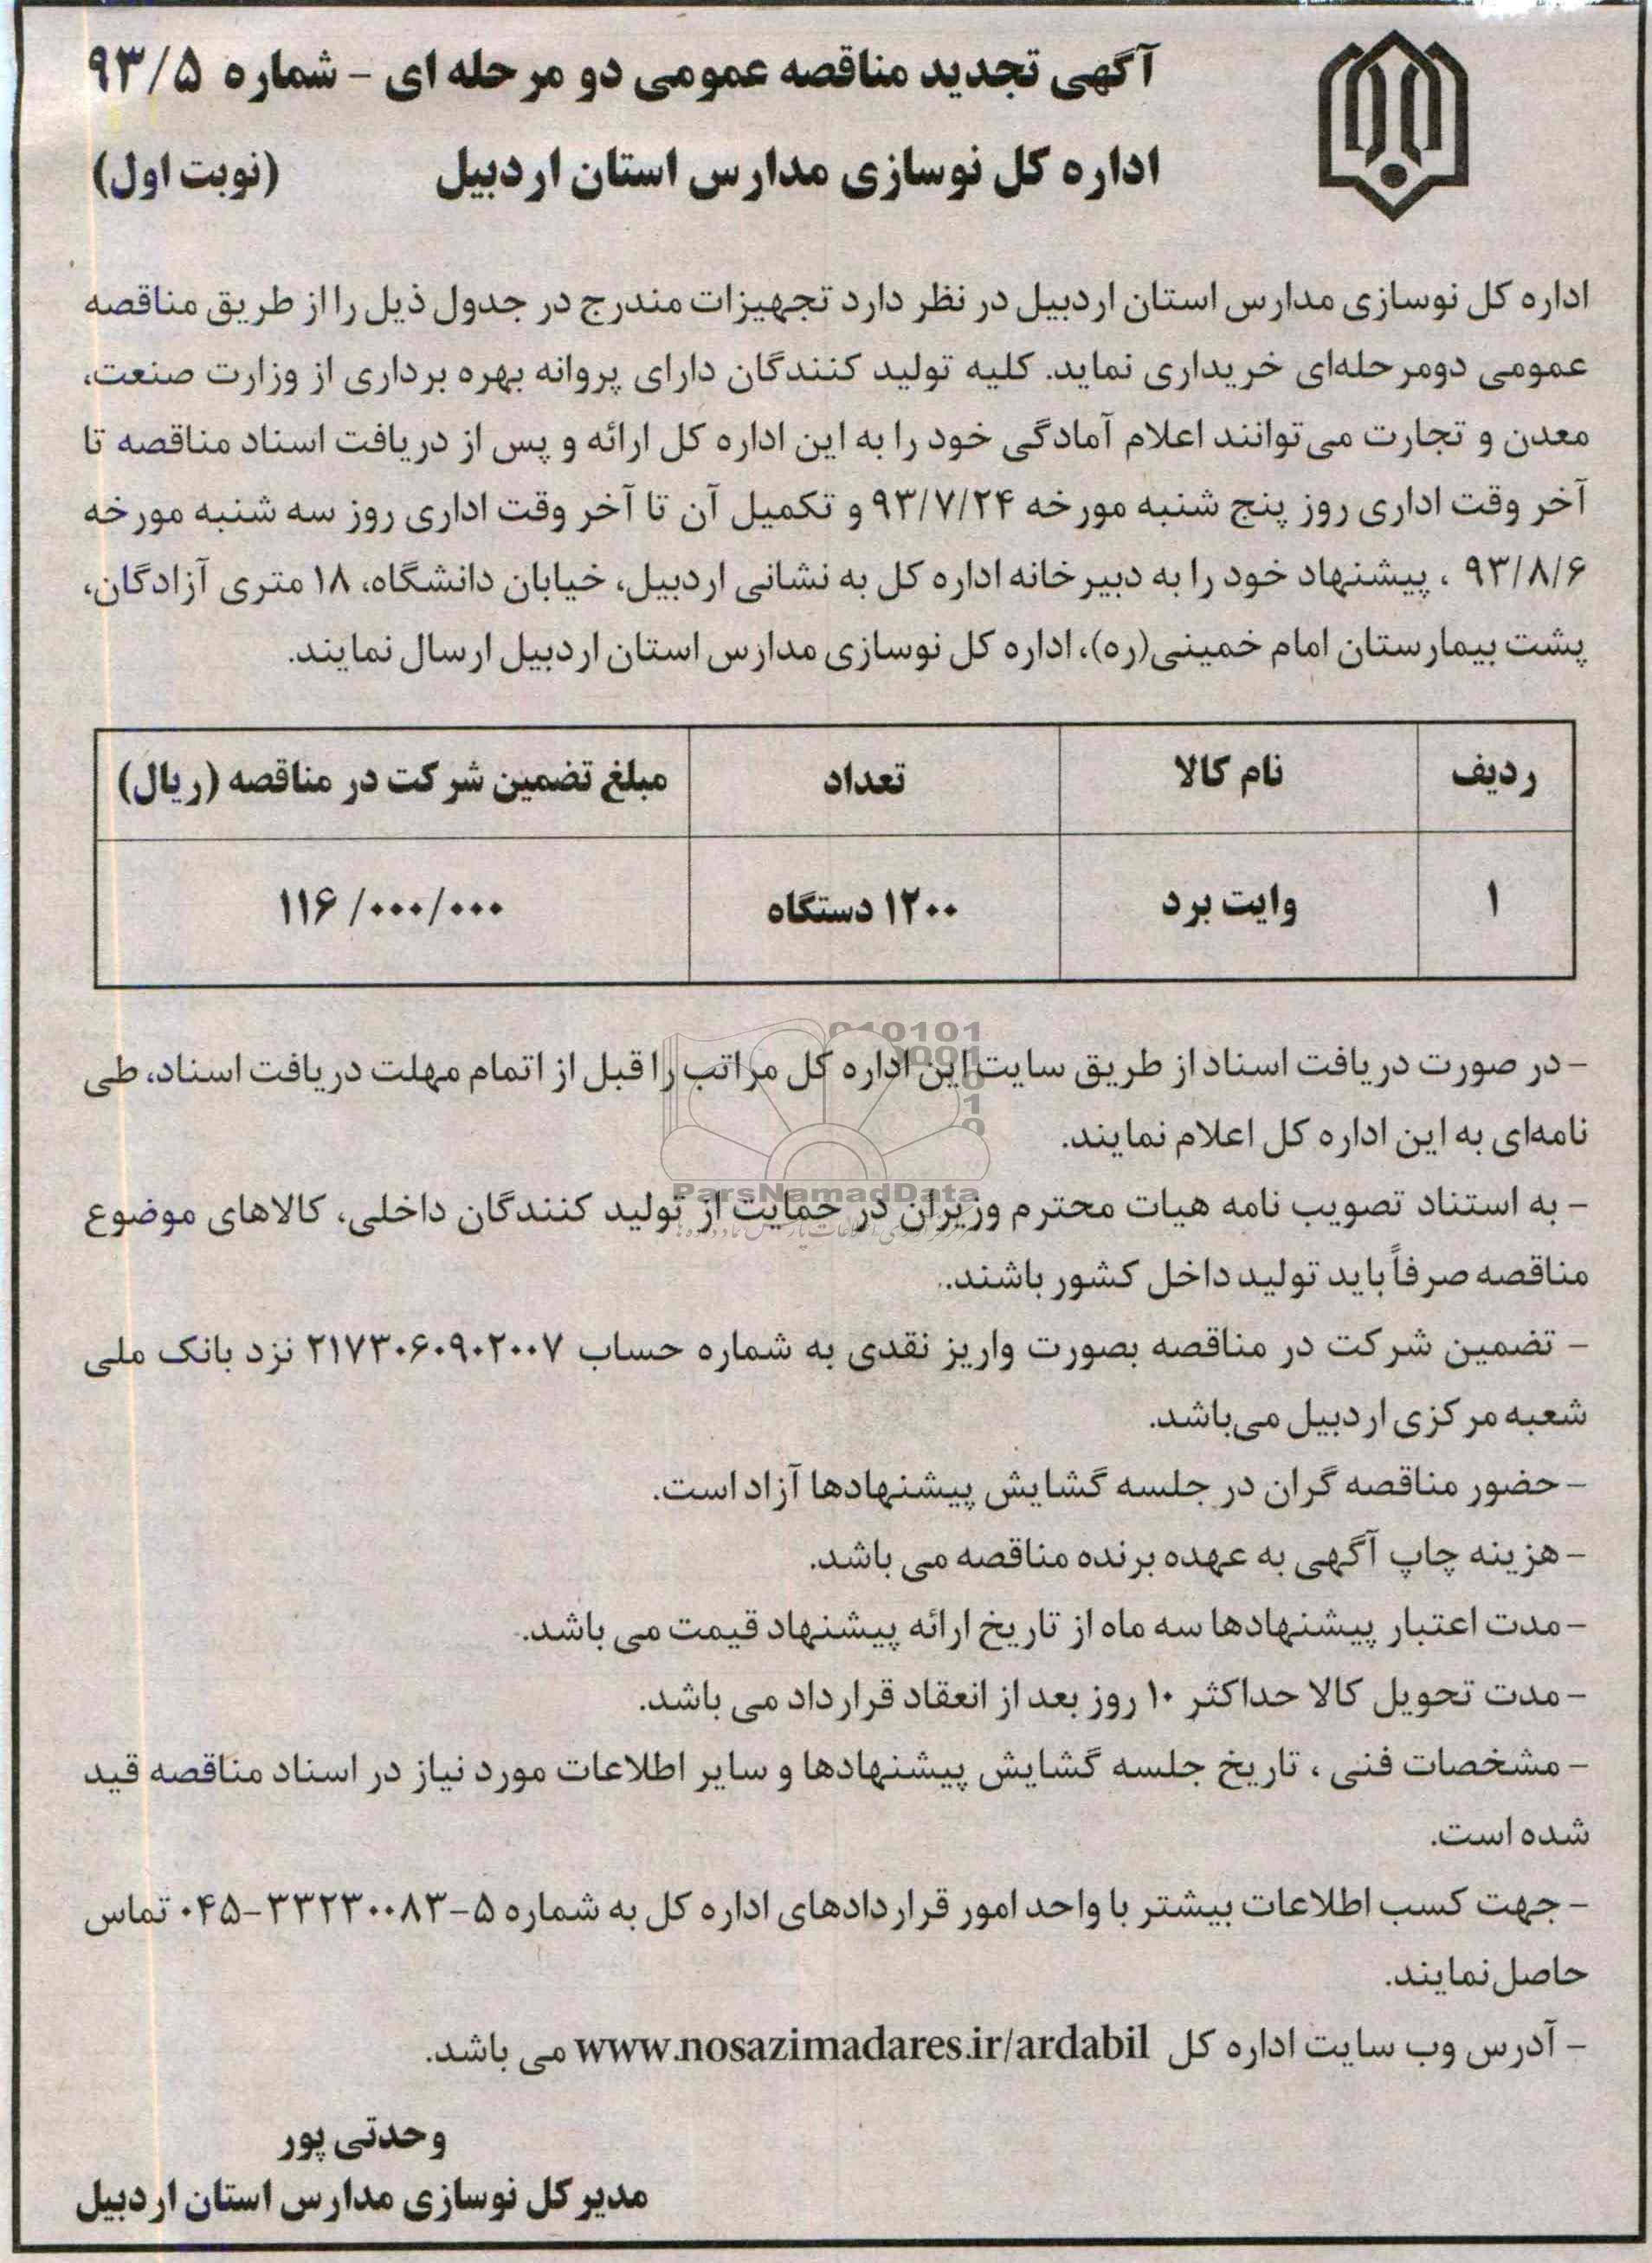 آگهی تجدید مناقصه عمومی دو مرحله ای - شماره ۹۳/۵
اداره کل نوسازی مدارس استان اردبیل (نوبت اول)
اداره کل نوسازی مدارس استان اردبیل در نظر دارد تجهیزات مندرج در جدول ذیل را از طریق مناقصه
عمومی دومرحله‌ای خریداری نماید. کلیه تولید کنندگان دارای پروانه بهره برداری از وزارت صنعت،
معدن و تجارت می‌توانند اعلام آمادگی خود را به این اداره کل ارائه و پس از دریافت اسناد مناقصه تا
آخر وقت اداری روز پنج شنبه مورخه ۹۳/۷/۲۴ و تکمیل آن تا آخر وقت اداری روز سه شنبه مورخه
۹۳/۸/۶ ، پیشنهاد خود را به دبیرخانه اداره کل به نشانی اردبیل، خیابان دانشگاه، ۱۸ متری آزادگان،
پشت بیمارستان امام خمینی(ره)، اداره کل نوسازی مدارس استان اردبیل ارسال نمایند.
ردیف نام کالا تعداد مبلغ تضمین شرکت در مناقصه (ریال)
۱ وایت برد ۱۲۰۰ دستگاه ۱۱۶/۰۰۰/۰۰۰
- در صورت دریافت اسناد از طریق سایت این اداره کل مراتب را قبل از اتمام مهلت دریافت اسناد، طی
نامه‌ای به این اداره کل اعلام نمایند.
ParsNamadData
- به استناد تصویب نامه هیات محترم وزیران در حمایت از تولید کنندگان داخلی، کالاهای موضوع
مناقصه صرفاً باید تولید داخل کشور باشند.
- تضمین شرکت در مناقصه بصورت واریز نقدی به شماره حساب ۲۱۷۳۰۶۰۹۰۲۰۰۷ نزد بانک ملی
شعبه مرکزی اردبیل می‌باشد.
- حضور مناقصه گران در جلسه گشایش پیشنهادها آزاد است.
- هزینه چاپ آگهی به عهده برنده مناقصه می باشد.
- مدت اعتبار پیشنهادها سه ماه از تاریخ ارائه پیشنهاد قیمت می باشد.
- مدت تحویل کالا حداکثر ۱۰ روز بعد از انعقاد قرارداد می باشد.
- مشخصات فنی ، تاریخ جلسه گشایش پیشنهادها و سایر اطلاعات مورد نیاز در اسناد مناقصه قید
شده است.
- جهت کسب اطلاعات بیشتر با واحد امور قراردادهای اداره کل به شماره ۵-۳۳۲۳۰۰۸۳-۰۴۵ تماس
حاصل نمایند.
- آدرس وب سایت اداره کل www.nosazimadares.ir/ardabil می باشد.
وحدتی پور
مدیرکل نوسازی مدارس استان اردبیل